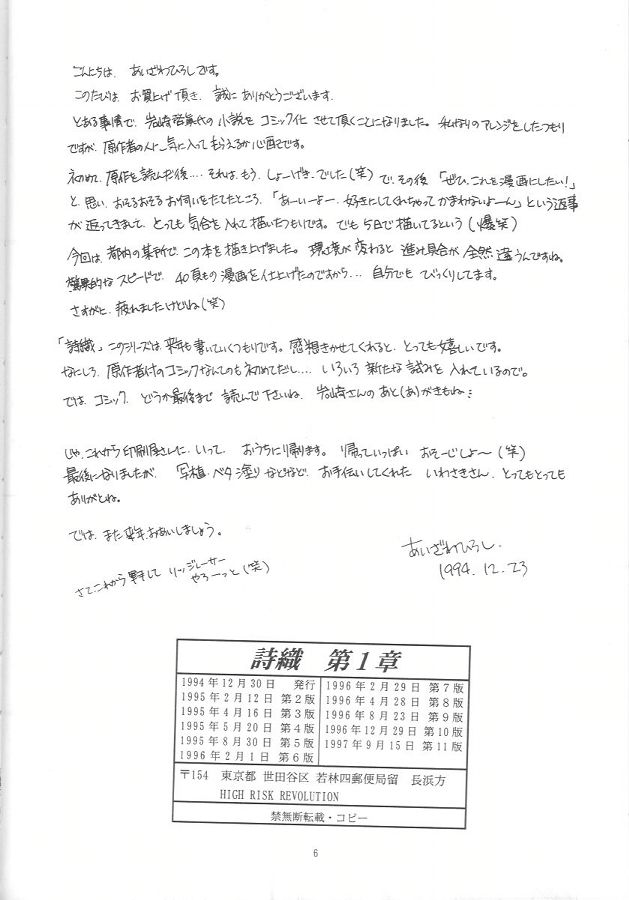 こんにちは、あいざわひろしです。
このたびは、お買上げ頂き、誠にありがとうございます。
とある事情で、岩崎啓眞氏の小説をコミック化させて頂くことになりました。私なりのアレンジをしたつもり
ですが、原作者の人に気に入ってもらえるか心配です。
初めて、原作を読んだ後‥‥それは、もう、しょーげき、でした(笑)で、その後「ぜひ、これを漫画にしたい!」
と、思い、おそるおそるお伺いをたてたところ、「あーいーよー、好きにしてくれちゃってかまわないよーん」という返事
が返ってきまして、とっても気合を入れて描いたつもりです。でも5日で描いてるという(爆笑)
今回は、都内の某所で、この本を描き上げました。環境が変わると進み具合が全然違うんですね。
驚異的なスピードで、40頁もの漫画を仕上げたのですから‥‥自分でもびっくりしてます。
さすがに、疲れましたけどね(笑)
「詩織」このシリーズは、来年も書いていくつもりです。感想きかせてくれると、とっても嬉しいです。
なにしろ、原作者付のコミックなんてのも初めてだし‥‥いろいろ新たな試みを入れているので。
では、コミック、どうか最後まで読んで下さいね、岩崎さんのあと(あ)がきもね‥
じゃ、これから印刷屋さんに、いって、おうちに帰ります。帰っていっぱいおそーじしよ〜(笑)
最後になりましたが、写植・ベタ塗りなどなど、お手伝いしてくれた いわさきさん、とってもとっても
ありがとね。
では、また来年、おあいしましょう。
さてこれから リッジレーサー
やろーっと(笑)
あいざわひろし
1994.12.23
詩織 第1章
1994年12月30日 発行
1995年2月12日 第2版
1995年4月16日 第3版
1995年5月20日 第4版
1995年8月30日 第5版
1996年2月1日 第6版
1996年2月29日 第7版
1996年4月28日 第8版
1996年8月23日 第9版
1996年12月29日 第10版
1997年9月15日 第11版
〒154 東京都 世田谷区 若林四郵便局留 長浜方
HIGH RISK REVOLUTION
禁無断転載・コピー
6